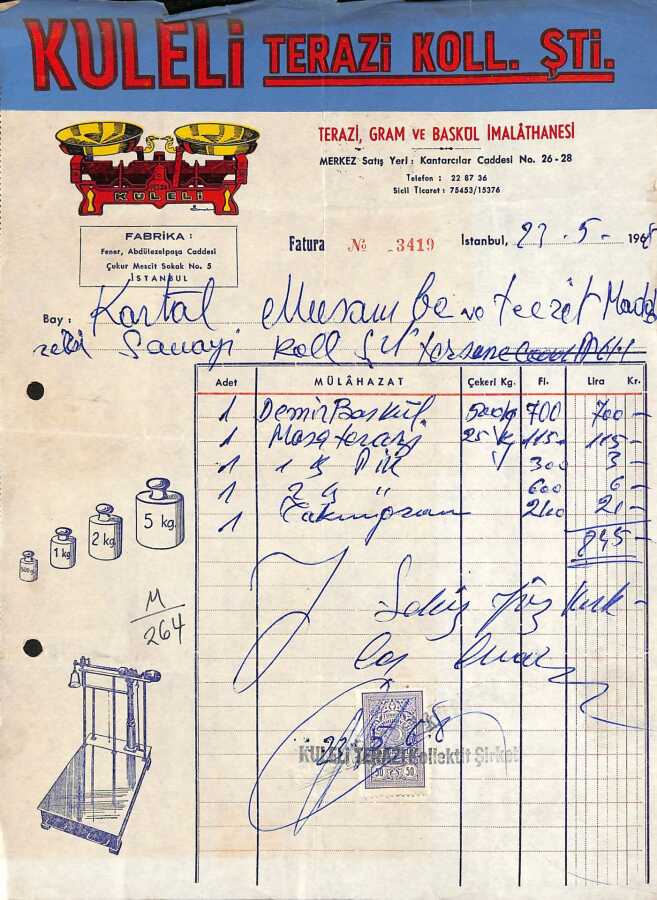 KULELİ TERAZİ KOLL. ŞTİ.
TERAZİ, GRAM VE BASKÜL İMALÂTHANESİ
MERKEZ Satış Yeri : Kantarcılar Caddesi No. 26 - 28
Telefon : 22 87 36
Sicil Ticaret : 75453/15376
KULELİ
FABRİKA :
Fener, Abdülezelpaşa Caddesi
Çukur Mescit Sokak No. 5
İSTANBUL
Fatura No 3419 İstanbul, 23 - 5 - 1968
Bay : Kartal Muşamba ve Tecrit
Sanayi Koll Şti
Adet MÜLÂHAZAT Çekeri Kg. Fi. Lira Kr.
1 Demir Baskül 500 kg 700 700 -
1 Masa terazi 25 kg 115 - 115 -
1 1 300 3 -
1 2 " 600 6 -
1 210 21 -
845 -
Sekiz Yüz Kırk
Beş Lira
500 g
1 kg
2 kg
5 kg
M
264
50 50
23 5 68
KULELİ TERAZİ Kollektif Şirketi